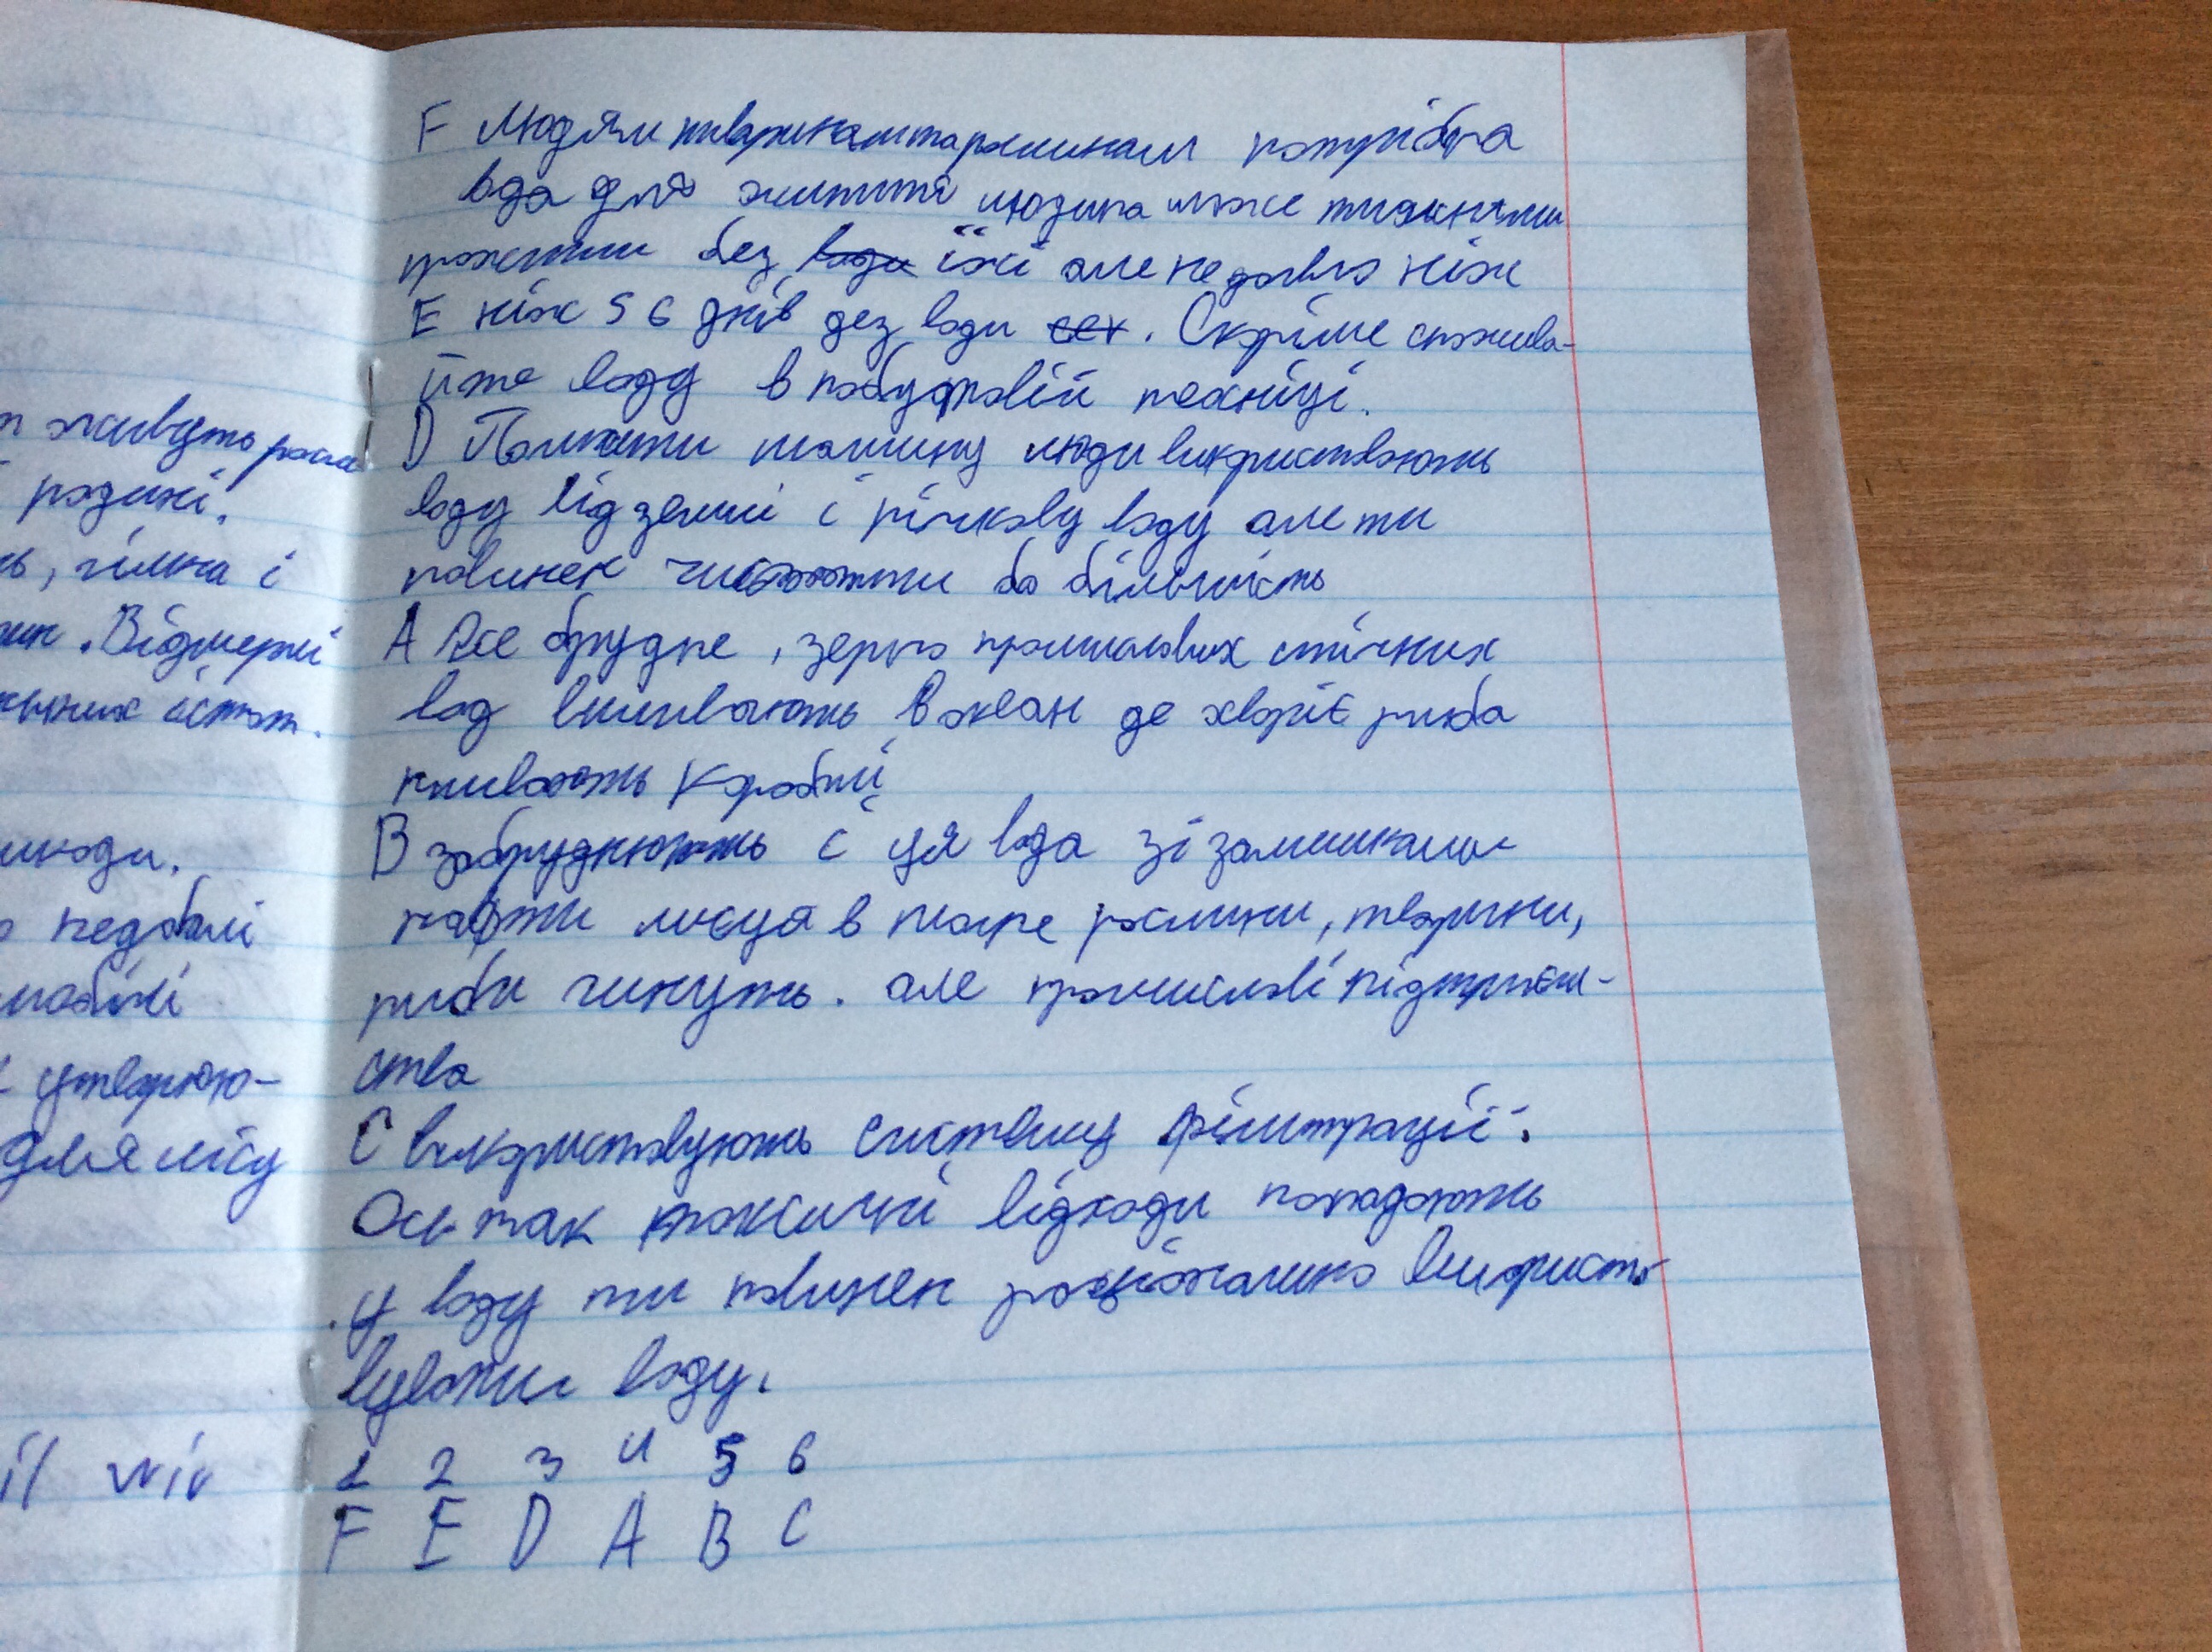 F Людям тваринам та рослинам потрібна
вода для життя людина може тижнями
прожити без води їжі але не довго ніж
E ніж 5 6 днів дез води сех. Скоріше спожива-
йте воду в побутовій техніці.
D Помити машину люди використвоють
воду від землі і річкову воду але ти
повинен чис бо більшість
A Все брудне, зерно промислових стічних
вод виливають в океан де хворіє риба
пливають Кораблі
B забруднюють і ця вода зі залишками
нафти місця в море рослини, тварини,
риби гинуть. але промислові підприєм-
ства
C використовують систему фільтрації.
Ось так токсичні відходи попадають
у воду ти повинен використо
вувати воду.
1 2 3 4 5 6
F E D A B C
живуть росл
родині.
гілка і
. Відмерлі
істот.
шкоди.
недобрі
утворю-
для лісу